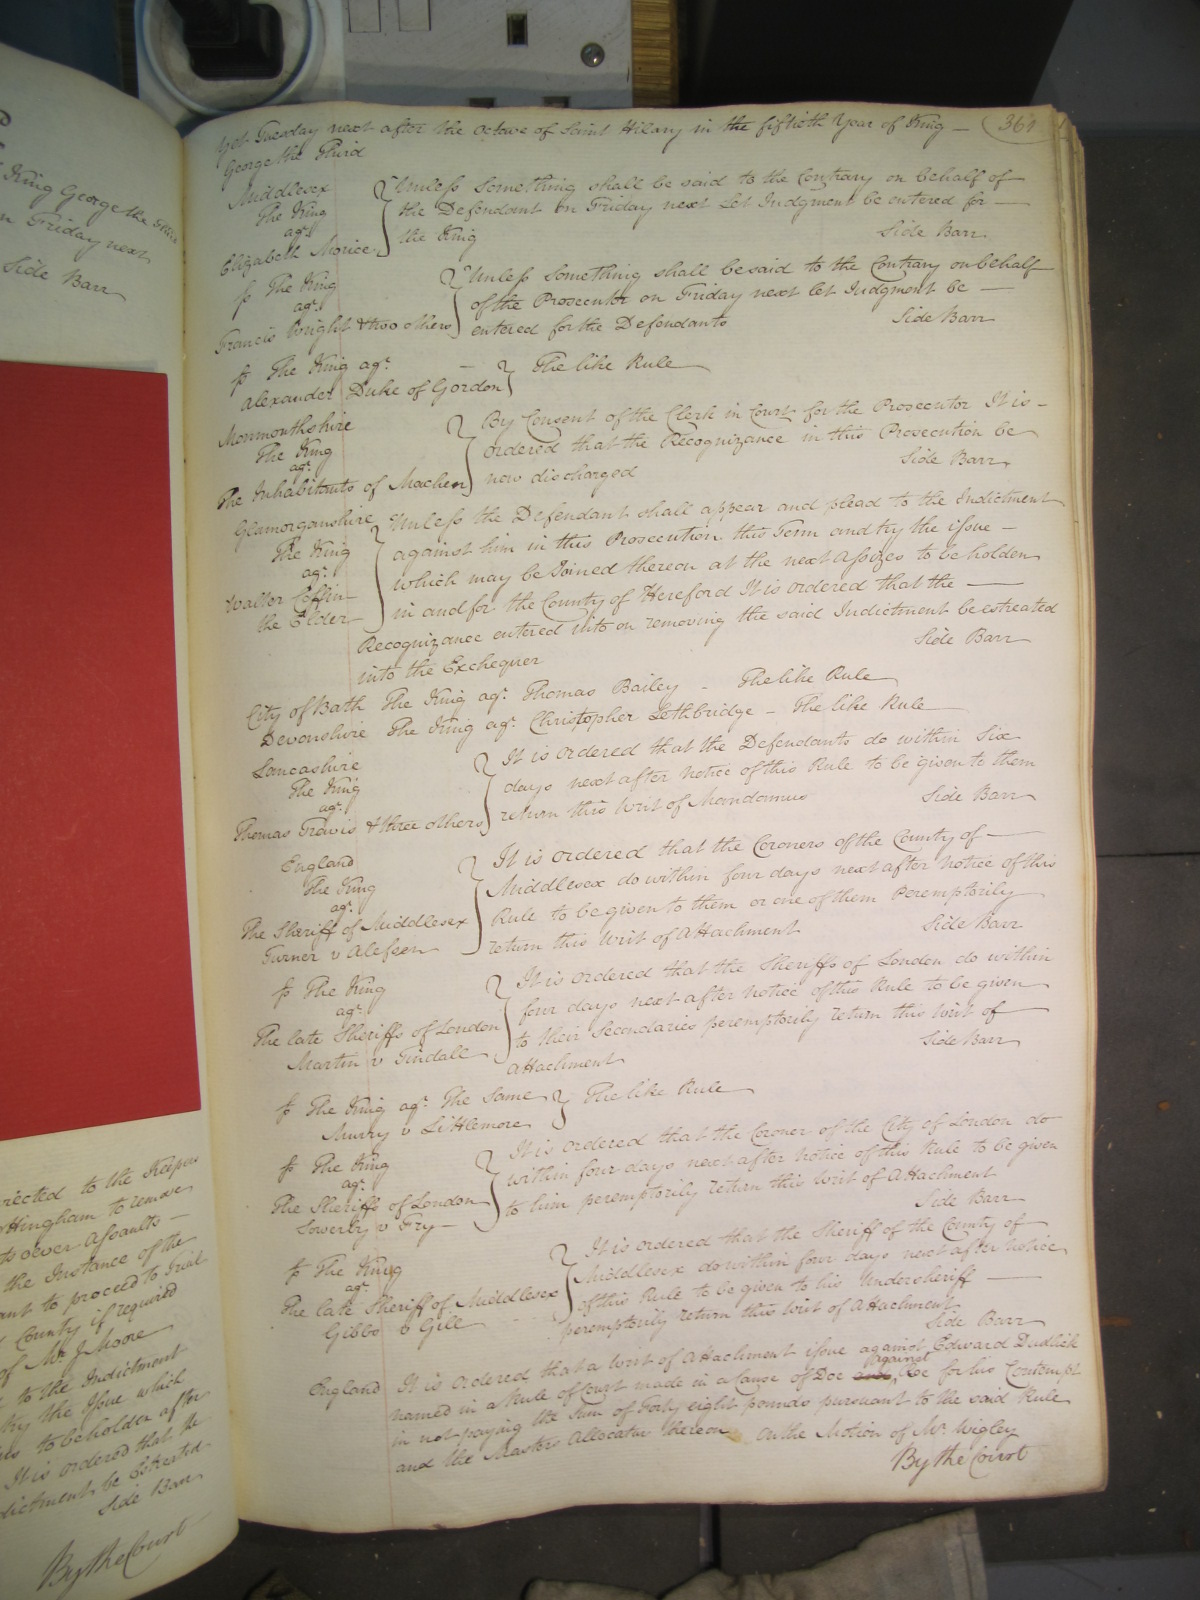 King George the Third
on Friday next
Side Barr
rected to the Keepers
Hingham to remove
Assaults —
the Instance of the
ant to proceed to trial
County if required
of Mr. J Moore
to the Indictment
try the Issue which
to be holden after
It is ordered that the
dictment be Estreated
Side Barr
By the Court
361
Yet Tuesday next after the Octave of Saint Hilary in the fiftieth Year of King —
George the Third
Middlesex
The King
agt.
Elizabeth Morice
Unless something shall be said to the Contrary on behalf of
the Defendant on Friday next Let Judgment be entered for —
the King Side Barr
The King
agt.
Francis Wright & two others
Unless something shall be said to the Contrary on behalf
of the Prosecutor on Friday next let Judgment be —
entered for the Defendants Side Barr
The King agt. —
Alexander Duke of Gordon
The like Rule
Monmouthshire
The King
agt.
The Inhabitants of Machen
By Consent of the Clerk in Court for the Prosecutor It is —
ordered that the Recognizance in this Prosecution be
now discharged Side Barr
Glamorganshire
The King
agt.
Walter Coffin
the Elder
Unless the Defendant shall appear and plead to the Indictment
against him in this Prosecution this Term and try the issue —
which may be Joined thereon at the next Assizes to be holden
in and for the County of Hereford It is ordered that the —
Recognizance entered into on removing the said Indictment be estreated
into the Exchequer Side Barr
City of Bath The King agt. Thomas Bailey — The like Rule
Devonshire The King agt. Christopher Lethbridge — The like Rule
Lancashire
The King
agt.
Thomas Travis & three others
It is ordered that the Defendants do within Six
days next after notice of this Rule to be given to them
return this Writ of Mandamus Side Barr
England
The King
agt.
The Sheriff of Middlesex
Turner v
It is ordered that the Coroners of the County of —
Middlesex do within four days next after notice of this
Rule to be given to them or one of them Peremptorily
return this Writ of Attachment Side Barr
The King
agt.
The late Sheriffs of London
Martin v Tindale
It is ordered that the Sheriffs of London do within
four days next after notice of this Rule to be given
to their Secondaries peremptorily return this Writ of
Attachment Side Barr
The King agt. The Same
Murry v Littlemore
The like Rule
The King
agt.
The Sheriffs of London
Sowerby v Fry —
It is ordered that the Coroner of the City of London do
within four days next after notice of this Rule to be given
to him peremptorily return this Writ of Attachment
Side Barr
The King
agt.
The late Sheriff of Middlesex
Gibbs v Gill
It is ordered that the Sheriff of the County of
Middlesex do within four days next after notice
of this Rule to be given to his Undersheriff —
peremptorily return this Writ of Attachment
Side Barr
England It is ordered that a Writ of Attachment issue against Edward Dudlick
named in a Rule of Court made in a Cause of Doe against Roe for his Contempt
in not paying the Sum of Forty eight pounds pursuant to the said Rule
and the Masters Allocatur thereon On the Motion of Mr. Wigley
By the Court